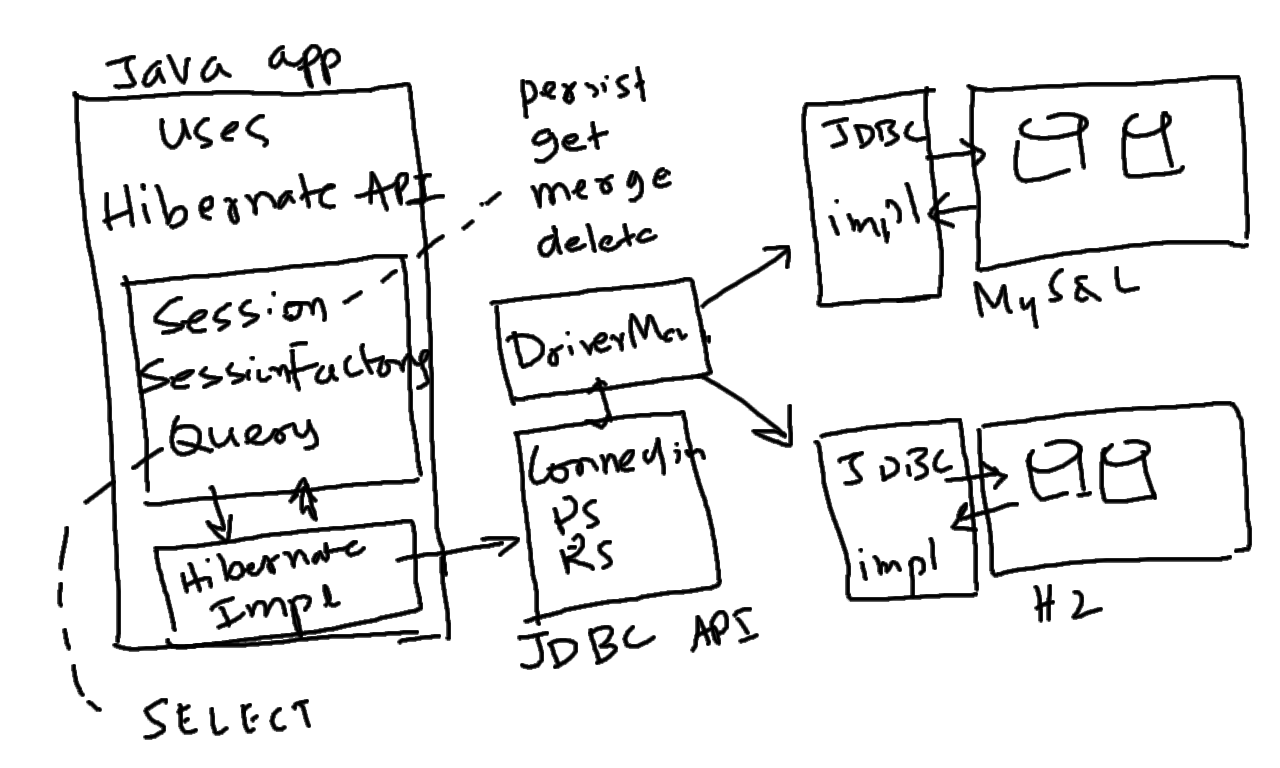 Java app
uses
Hibernate API
Session
SessionFactory
Query
Hibernate
Impl
SELECT
persist
get
merge
delete
DriverMan
Connection
PS
RS
JDBC API
JDBC
impl
MySQL
JDBC
impl
H2